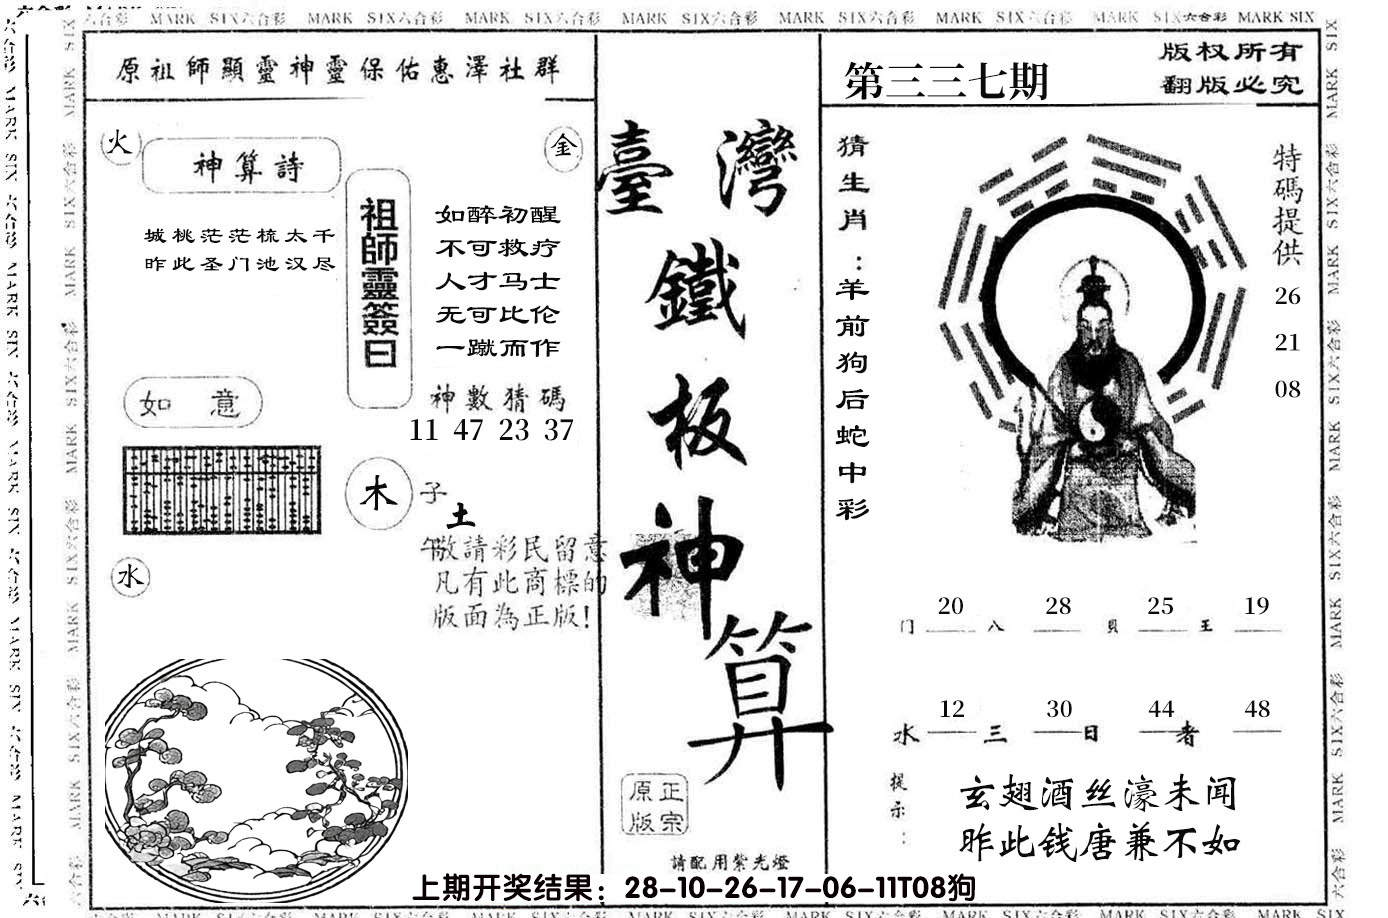 MARK SIX六合彩 MARK SIX六合彩 MARK SIX六合彩 MARK SIX六合彩 MARK SIX六合彩 MARK SIX六合彩 MARK SIX六合彩 MARK SIX
原祖師顯靈神靈保佑惠澤社群
火
神算詩
金
城桃茫茫梳太千
昨此圣门池汉尽
祖師靈簽曰
如醉初醒
不可救疗
人才马士
无可比伦
一蹴而作
神數猜碼
11 47 23 37
如意
木
子
土
午
敬請彩民留意
凡有此商標的
版面為正版!
水
臺灣
鐵
板
神
算
正宗
原版
請配用紫光燈
第三三七期
版权所有
翻版必究
猜生肖:羊前狗后蛇中彩
特碼提供
26
21
08
20 28 25 19
门 八 貝 王
12 30 44 48
水 三 日 者
提示:
玄翅酒丝濠未闻
昨此钱唐兼不如
上期开奖结果：28-10-26-17-06-11T08狗